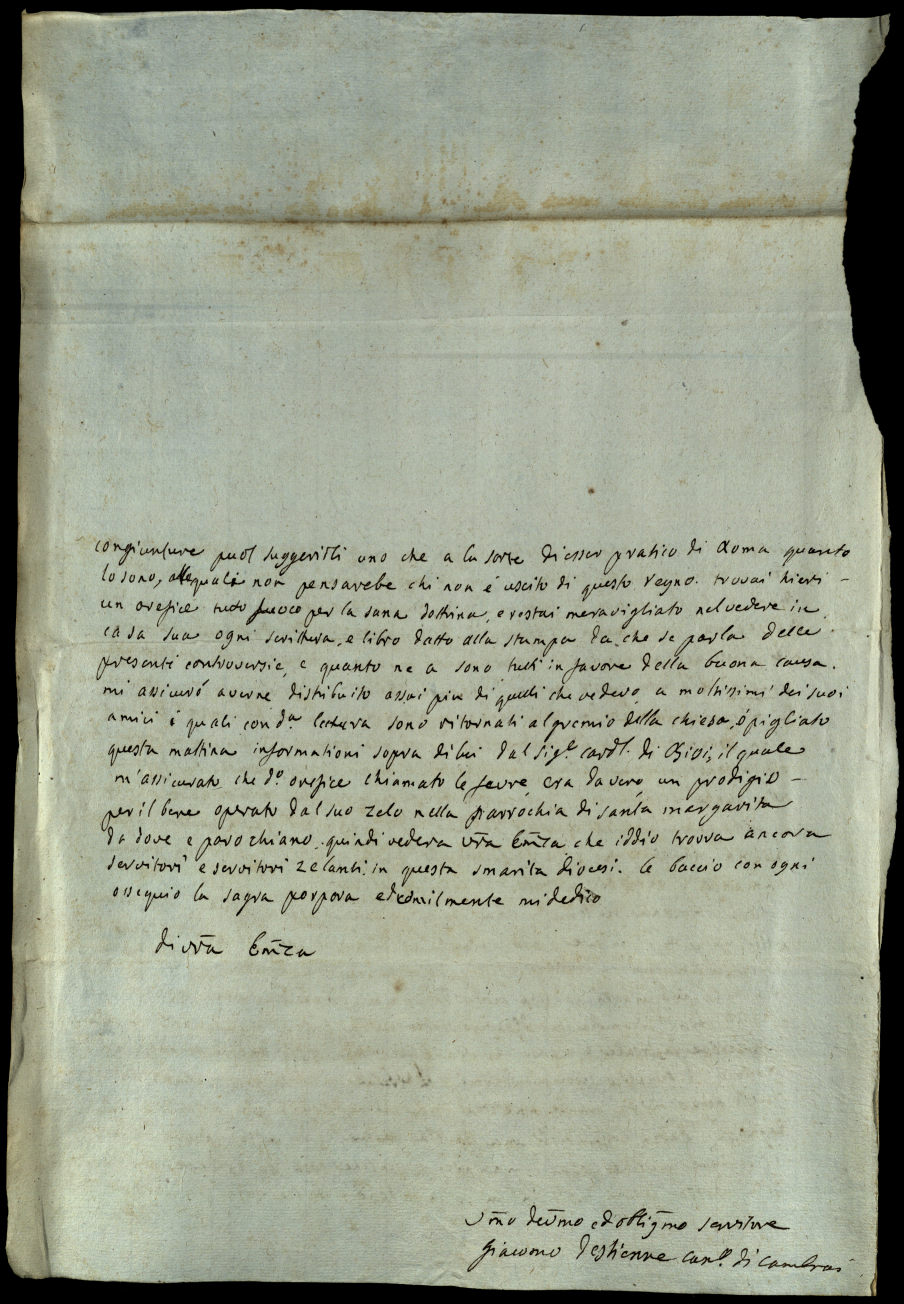 congiunture puol suggerirli uno che a la sorte di esser pratico di Roma quanto
lo sono, alle quali non pensarebe chi non é uscito di questo regno. trovai hieri -
un orefice tudo fuoco per la sana dottrina, e restai meravigliato nel vedere in
casa sua ogni scrittura, e libro datto alla stampa da che se parla delle
presenti controversie, e quanto ne a sono tutti in favore della buona causa.
mi assicuró averne distribuito assai piu di quelli che vedevo, a moltissimi dei suoi
amici i quali con da lectura sono ritornati al premio della chiesa, ó pigliato
questa mattina informationi sopra di lui dal sigr. cardl. di, il quale
m'assicurato che do. orefice chiamato le fevre, era davero un prodigio -
per il bene operato dal suo zelo nella parrochia di santa margarita
da dove e parochiano. quindi vedera vra Emza che iddio trovva ancora
servitori e servitori zelanti in questa smarita diocesi. le baccio con ogni
ossequio la sagra porpora ed umilmente mi dedico
di vra Emza
Umo devmo ed obligmo servitore
Giacomo canco. di Cambrai